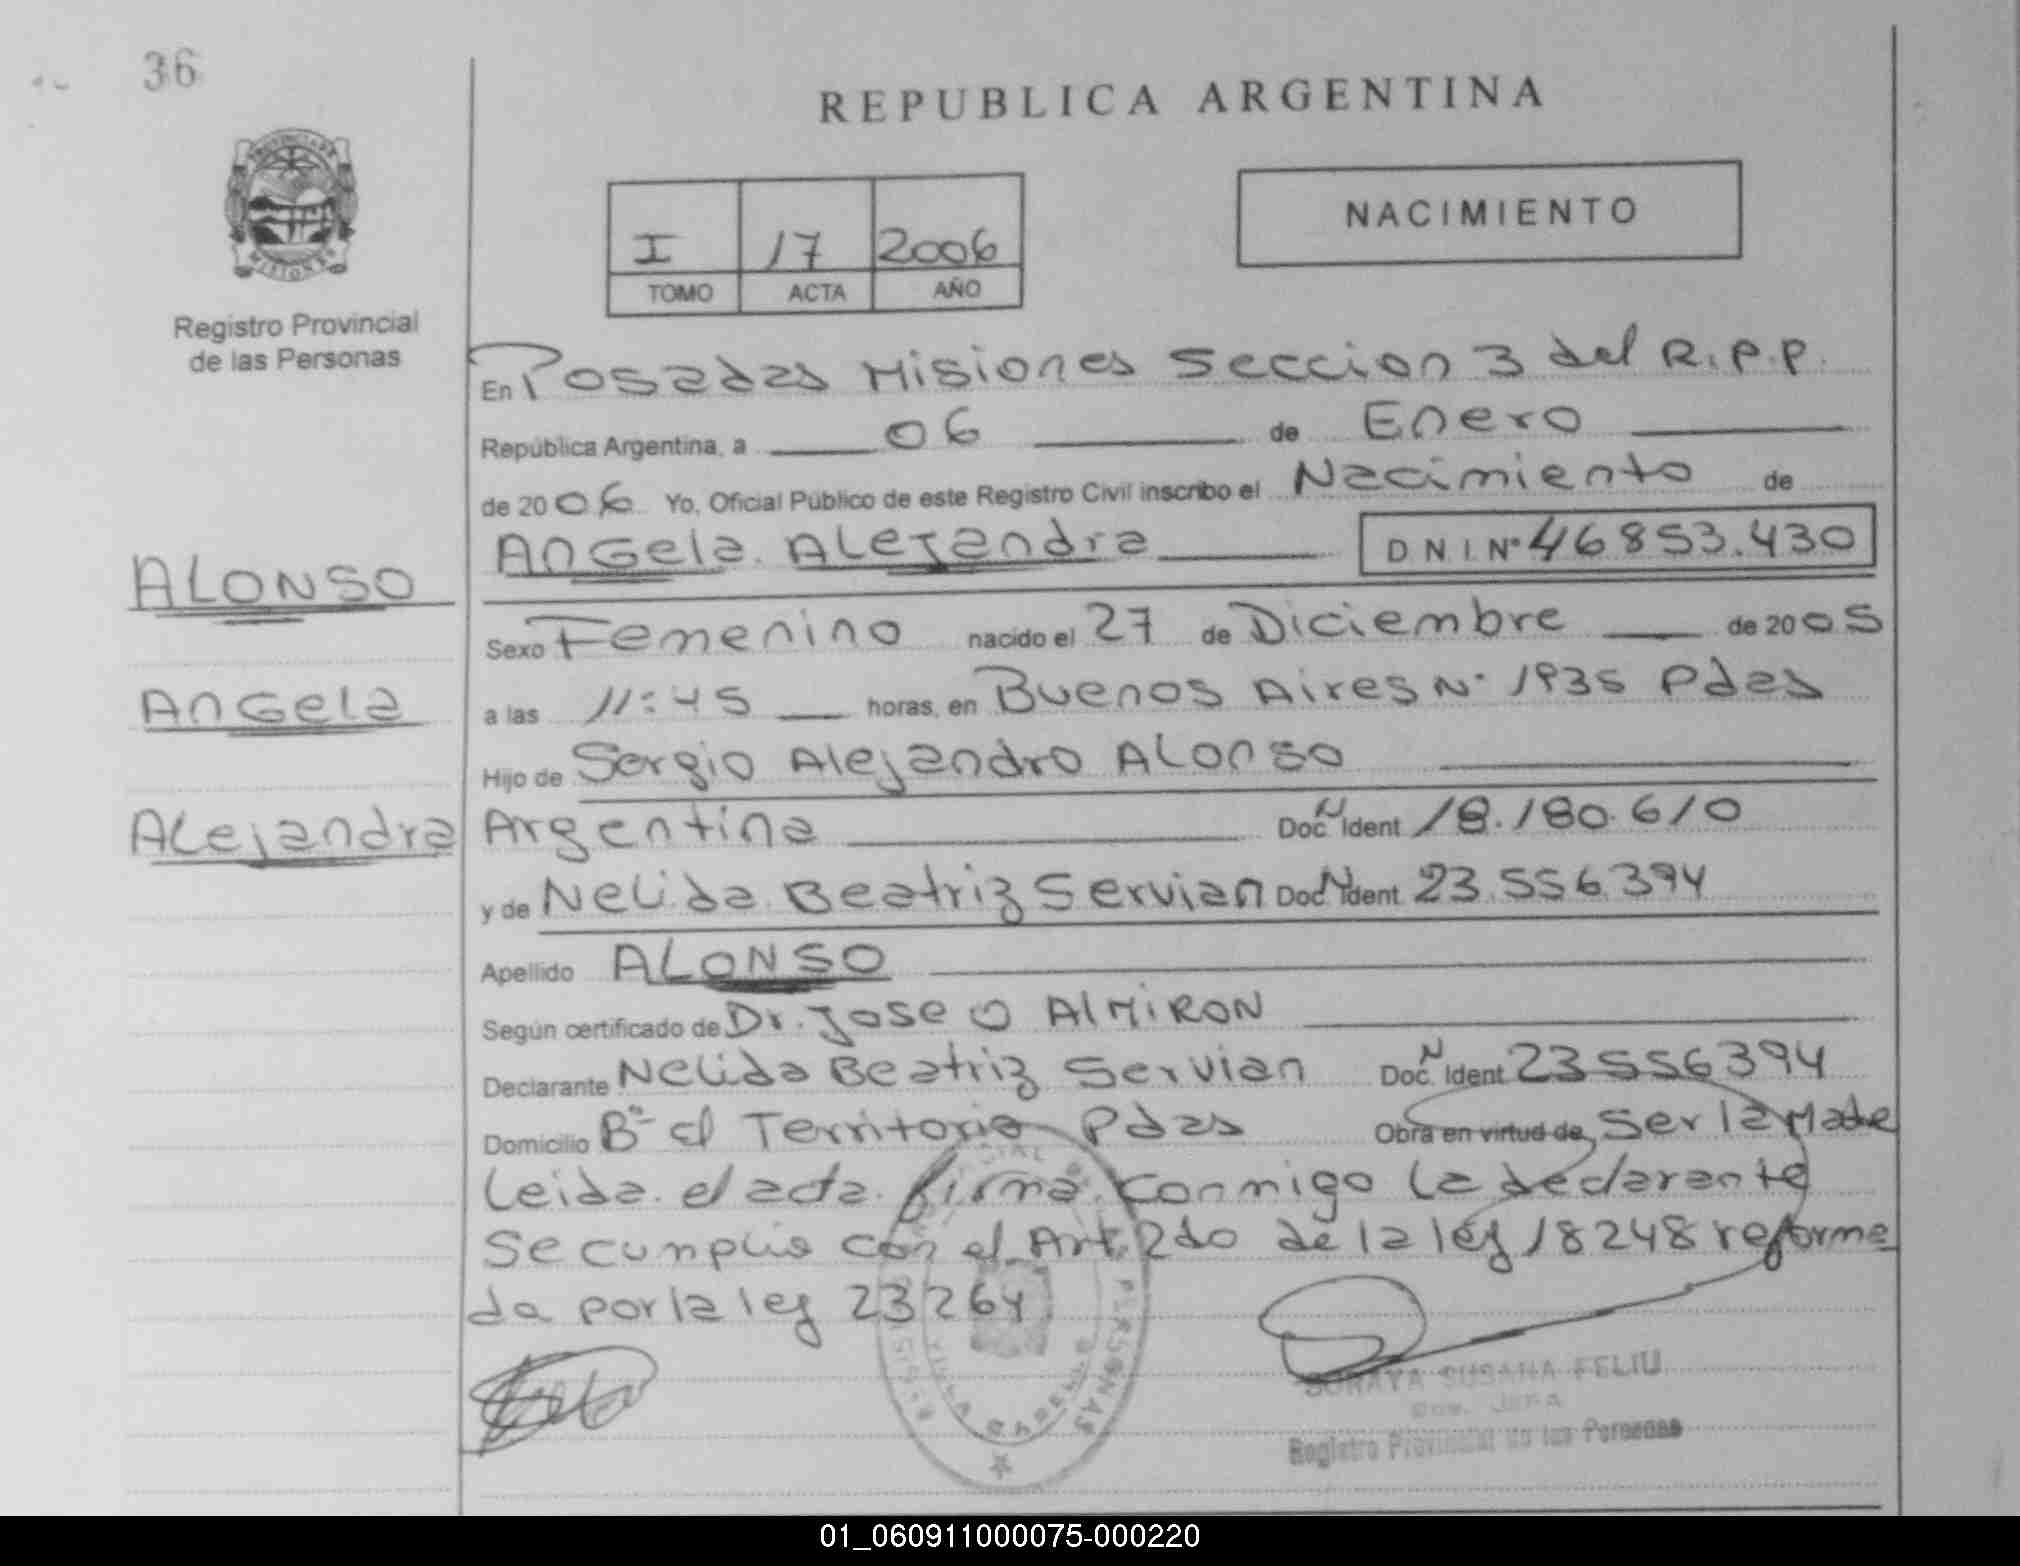 36
REPUBLICA ARGENTINA
PROVINCIA DE
MISIONES
Registro Provincial
de las Personas
I 17 2006
TOMO ACTA AÑO
NACIMIENTO
En Posadas Misiones Seccion 3 del R.P.P.
República Argentina, a 06 de Enero
de 2006 Yo, Oficial Público de este Registro Civil inscribo el Nacimiento de
Angela Alejandra D.N.I. Nº 46853.430
ALONSO
Angela
Alejandra
Sexo Femenino nacido el 27 de Diciembre de 2005
a las 11:45 horas, en Buenos Aires N° 1935 Pdas
Hijo de Sergio Alejandro Alonso
Argentina Doc. N Ident 18.180.610
y de Nelida Beatriz Servian Doc. N Ident 23.556.394
Apellido ALONSO
Según certificado de Dr. Jose O AlMiRON
Declarante Nelida Beatriz Servian Doc. N Ident 23556394
Domicilio Bº el Territorio Pdas Obra en virtud de Ser la Madre
Leida el acta firma conmigo la declarante
Se cumplio con el Art. 2do de la ley 18248 reforma
da por la ley 23264
SORAYA SUSANA FELIU
Registro Provincial de las Personas
01_060911000075-000220